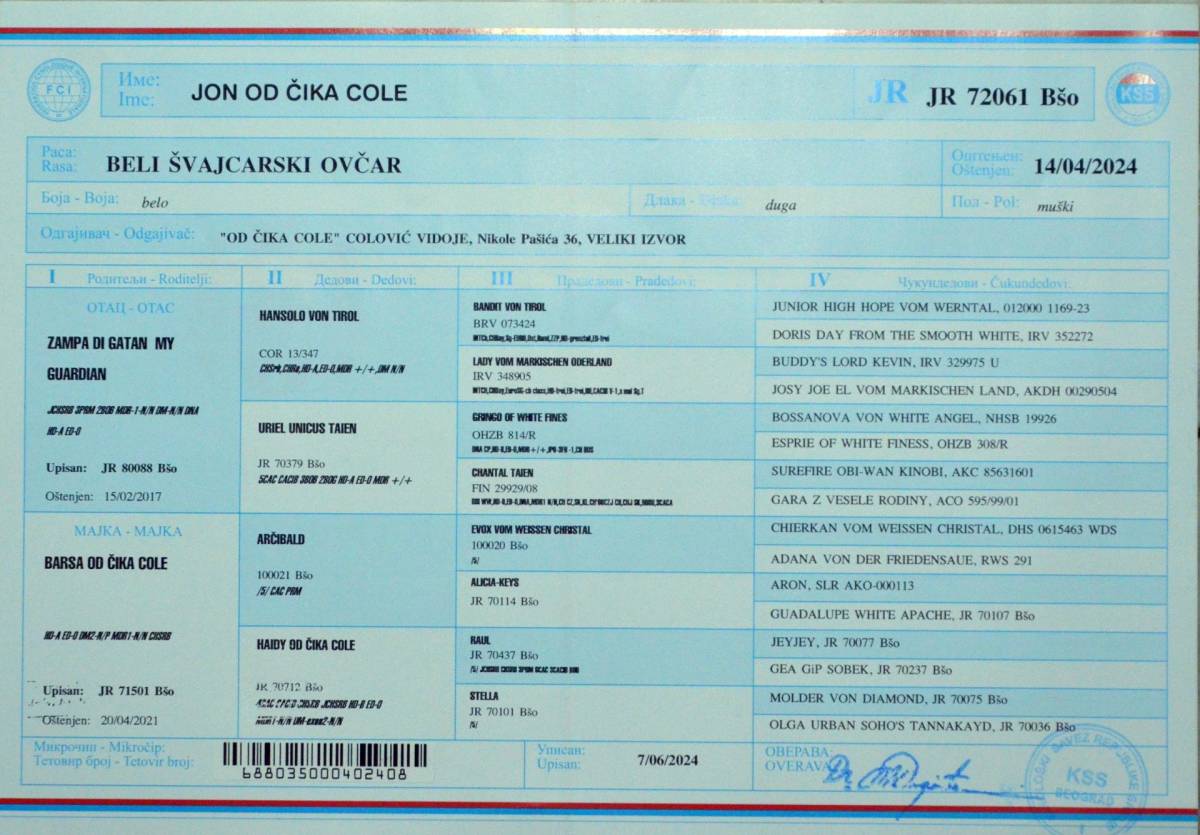 FCI
Име:
Ime:
JON OD ČIKA COLE
JR
JR 72061 Bšo
KSS
Раса:
Rasa:
BELI ŠVAJCARSKI OVČAR
Оштењен:
Oštenjen:
14/04/2024
Боја - Boja:
belo
Длака -
duga
Пол - Pol:
muški
Одгајивач - Odgajivač:
"OD ČIKA COLE" COLOVIĆ VIDOJE, Nikole Pašića 36, VELIKI IZVOR
I Родитељи - Roditelji:
II Дедови - Dedovi:
III Прадедови - Pradedovi:
IV Чукундедови - Čukundedovi:
ОТАЦ - OTAC
ZAMPA DI GATAN MY
GUARDIAN
JCHSRB 3PBM 2BOB MDR-1-N/N DM-N/N DNA
HD-A ED-0
Upisan: JR 80088 Bšo
Oštenjen: 15/02/2017
МАЈКА - MAJKA
BARSA OD ČIKA COLE
HD-A ED-0 DM2-N/P MDR1-N/N CHSRB
Upisan: JR 71501 Bšo
Oštenjen: 20/04/2021
HANSOLO VON TIROL
COR 13/347
CHSrb,CHRe,HD-A,ED-0,MDR +/+,DM N/N
URIEL UNICUS TAIEN
JR 70379 Bšo
5CAC CACIB 3BOB 2BOG HD-A ED-0 MDR +/+
ARČIBALD
100021 Bšo
/5/ CAC PBM
HAIDY OD ČIKA COLE
JR 70712 Bšo
JCHSRB HD-B ED-0
MDR1-N/N DM-exon2-N/N
BANDIT VON TIROL
BRV 073424
LADY VOM MARKISCHEN ODERLAND
IRV 348905
GRINGO OF WHITE FINES
OHZB 814/R
CHANTAL TAIEN
FIN 29929/08
EVOX VOM WEISSEN CHRISTAL
100020 Bšo
/5/
ALICIA-KEYS
JR 70114 Bšo
RAUL
JR 70437 Bšo
/5/ JCHSRB CHSRB 3PBM 6CAC 3CACIB BOB
STELLA
JR 70101 Bšo
/5/
JUNIOR HIGH HOPE VOM WERNTAL, 012000 1169-23
DORIS DAY FROM THE SMOOTH WHITE, IRV 352272
BUDDY'S LORD KEVIN, IRV 329975 U
JOSY JOE EL VOM MARKISCHEN LAND, AKDH 00290504
BOSSANOVA VON WHITE ANGEL, NHSB 19926
ESPRIE OF WHITE FINESS, OHZB 308/R
SUREFIRE OBI-WAN KINOBI, AKC 85631601
GARA Z VESELE RODINY, ACO 595/99/01
CHIERKAN VOM WEISSEN CHRISTAL, DHS 0615463 WDS
ADANA VON DER FRIEDENSAUE, RWS 291
ARON, SLR AKO-000113
GUADALUPE WHITE APACHE, JR 70107 Bšo
JEYJEY, JR 70077 Bšo
GEA GiP SOBEK, JR 70237 Bšo
MOLDER VON DIAMOND, JR 70075 Bšo
OLGA URBAN SOHO'S TANNAKAYD, JR 70036 Bšo
Микрочип - Mikročip:
Тетовир број - Tetovir broj:
688035000402408
Уписан:
Upisan:
7/06/2024
ОВЕРАВА:
OVERAVA
KSS
BEOGRAD